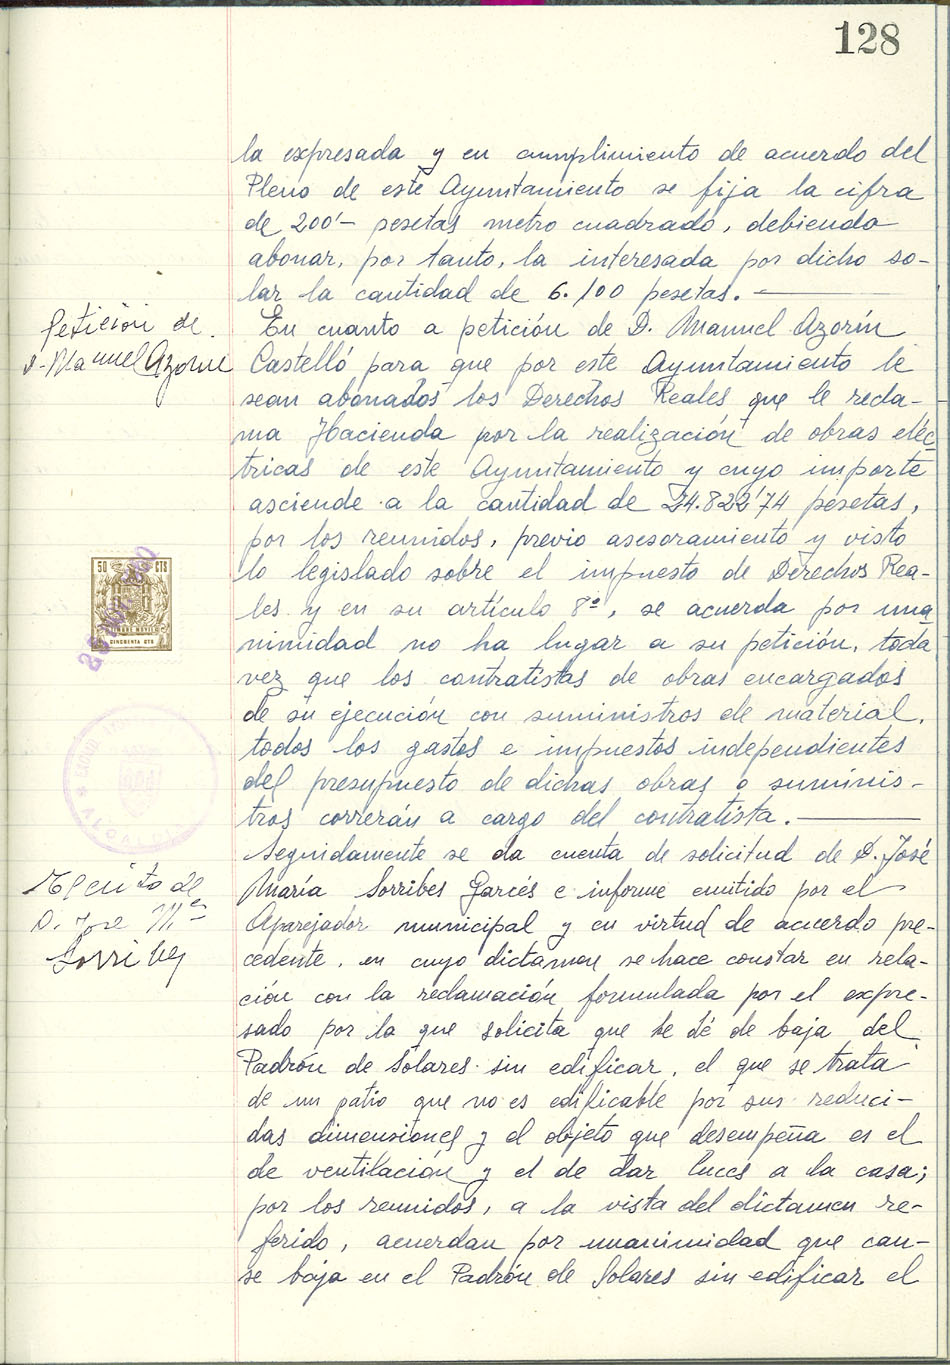 128
la expresada y en cumplimiento de acuerdo del
Pleno de este Ayuntamiento se fija la cifra
de 200'- pesetas metro cuadrado, debiendo
abonar, por tanto, la interesada por dicho so-
lar la cantidad de 6.100 pesetas.
Petición de
D. Manuel Azorín
En cuanto a petición de D. Manuel Azorín
Castelló para que por este Ayuntamiento le
sean abonados los Derechos Reales que le recla-
ma Hacienda por la realización de obras eléc-
tricas de este Ayuntamiento y cuyo importe
asciende a la cantidad de 24.822'74 pesetas,
por los reunidos, previo asesoramiento y visto
lo legislado sobre el impuesto de Derechos Rea-
les y en su artículo 8º, se acuerda por una
nimidad no ha lugar a su petición, toda
vez que los contratistas de obras encargados
de su ejecución con suministros de material,
todos los gastos e impuestos independientes
del presupuesto de dichas obras o suminis-
tros correrán a cargo del contratista.
50 CTS
TIMBRE MOVIL
CINCUENTA CTS
ALCALDIA
Escrito de
D. Jose Mª
Sorribes
Seguidamente se da cuenta de solicitud de D. José
María Sorribes Garcés e informe emitido por el
Aparejador municipal y en virtud de acuerdo pre-
cedente, en cuyo dictamen se hace constar en rela-
ción con la reclamación formulada por el expre-
sado por la que solicita que se dé de baja del
Padrón de Solares sin edificar, el que se trata
de un patio que no es edificable por sus reduci-
das dimensiones y el objeto que desempeña es el
de ventilación y el de dar luces a la casa;
por los reunidos, a la vista del dictamen re-
ferido, acuerdan por unanimidad que cau-
se baja en el Padrón de Solares sin edificar el